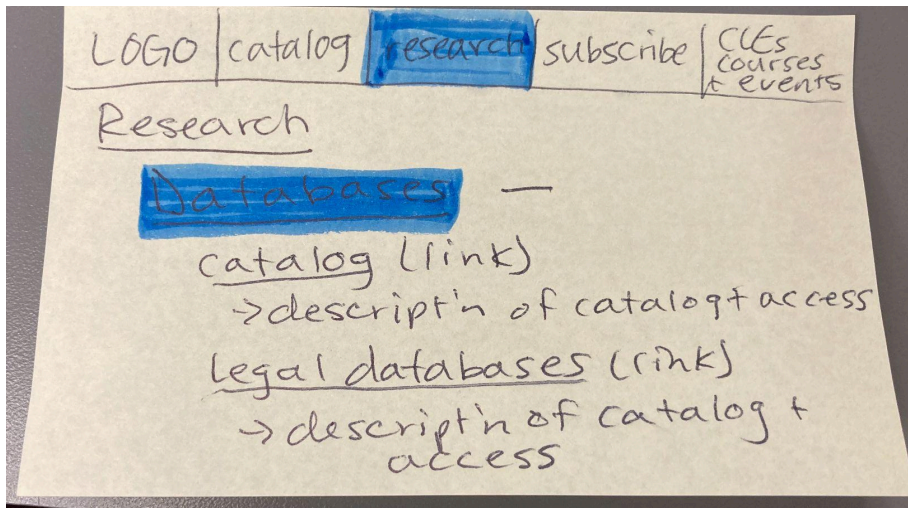 LOGO | catalog | research | subscribe | CLEs
courses
+ events
Research
Databases —
catalog (link)
→descript'n of catalog + access
Legal databases (link)
→ descript'n of catalog +
access